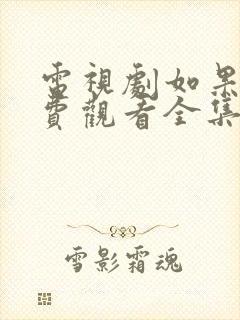 電視劇如果
費觀看全集
雪影霜魂